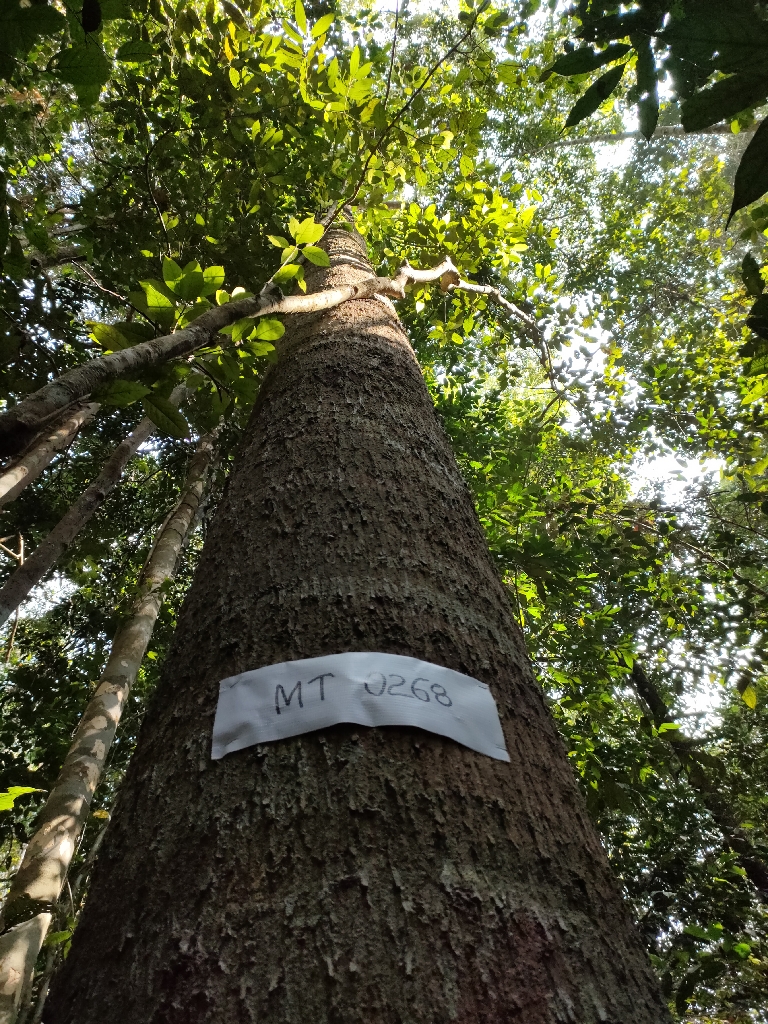 MT 0268